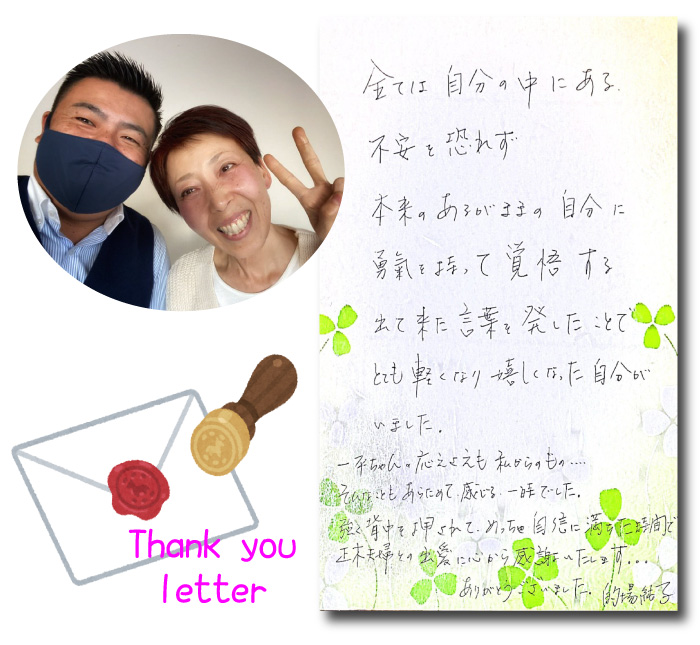 全ては 自分の中にある.
不安を恐れず
本来のあるがままの自分に
勇氣を持って覚悟する
出て来た言葉を発したことで
とても軽くなり嬉しくなった自分が
いました.
応えよえも 私からのもの....
そんなこともあらためて.感じる.一時でした.
強く背中を押されて.めっちゃ自信に満ちた時間で
正木夫婦との出愛に心から感謝いたします...
ありがとうございました. 的場結子
Thank you
letter